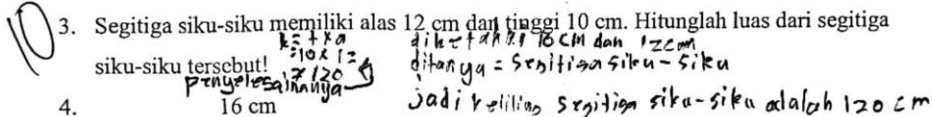 10
3. Segitiga siku-siku memiliki alas 12 cm dan tinggi 10 cm. Hitunglah luas dari segitiga
siku-siku tersebut!
k = t x a
= 10 x 12
= 120
Penyelesainanya
diketahui 10 cm dan 12 cm
ditanya = segitiga siku-siku
jadi keliling segitiga siku-siku adalah 120 cm
4. 16 cm